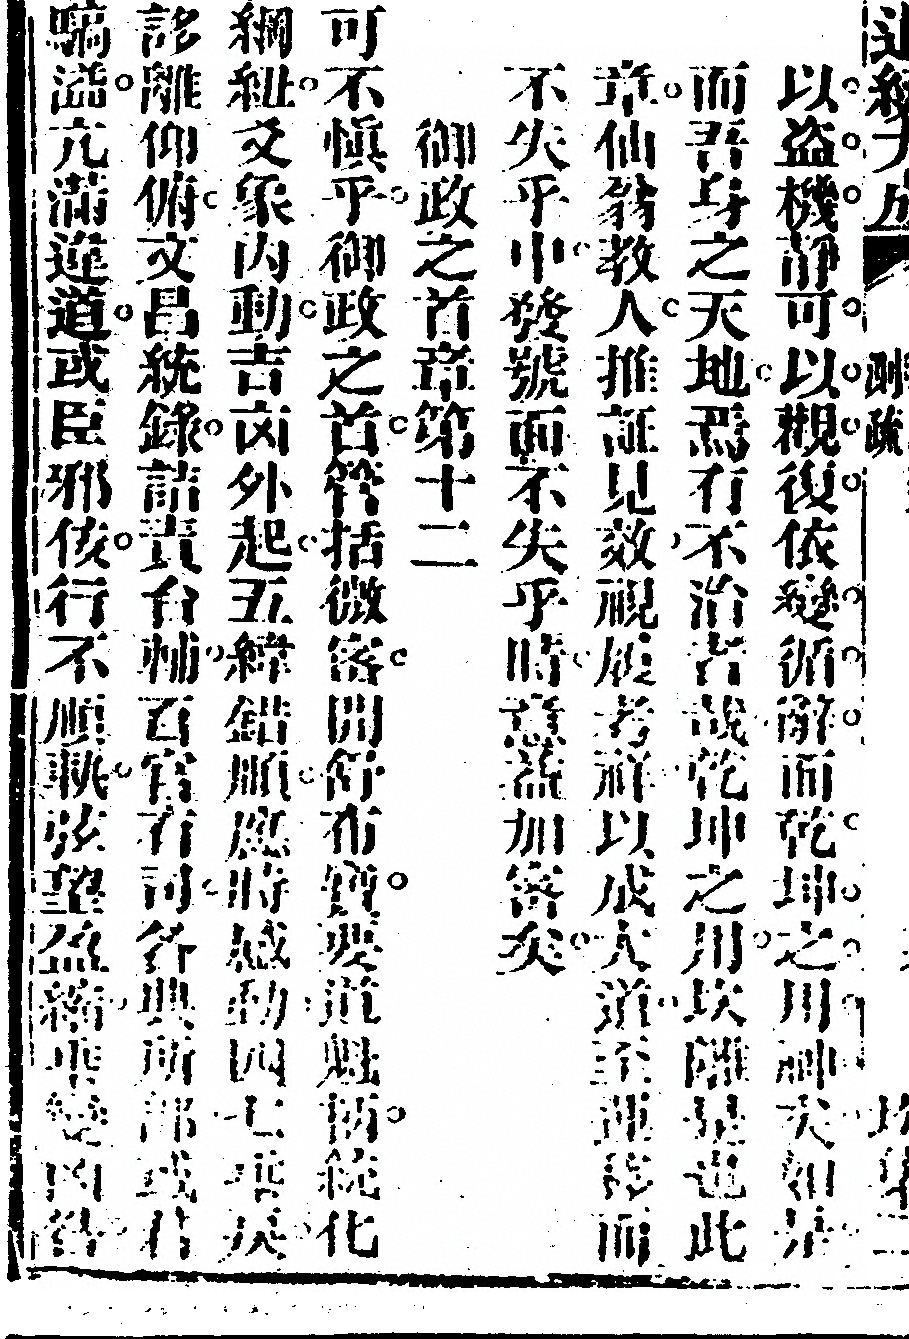 道統大成 測疏 坎集二
以盜機靜可以觀復依變循辭而乾坤之用神矣如是
而吾身之天地焉有不治者哉乾坤之用坎離是也此
章仙翁教人推証見效視履考祥以成大道至蓮發而
不失乎中發號而不失乎時意益加密矣
御政之首章第十二
可不慎乎御政之首管括微密開舒布寶要道魁柄統化
綱紐爻象內動吉凶外起五緯錯順應時感動四七乖戾
誃離仰俯文昌統錄詰責台輔百官有司各典所部或君
驕溢亢滿違道或臣邪佞行不順軌弦望盈縮乖變凶咎